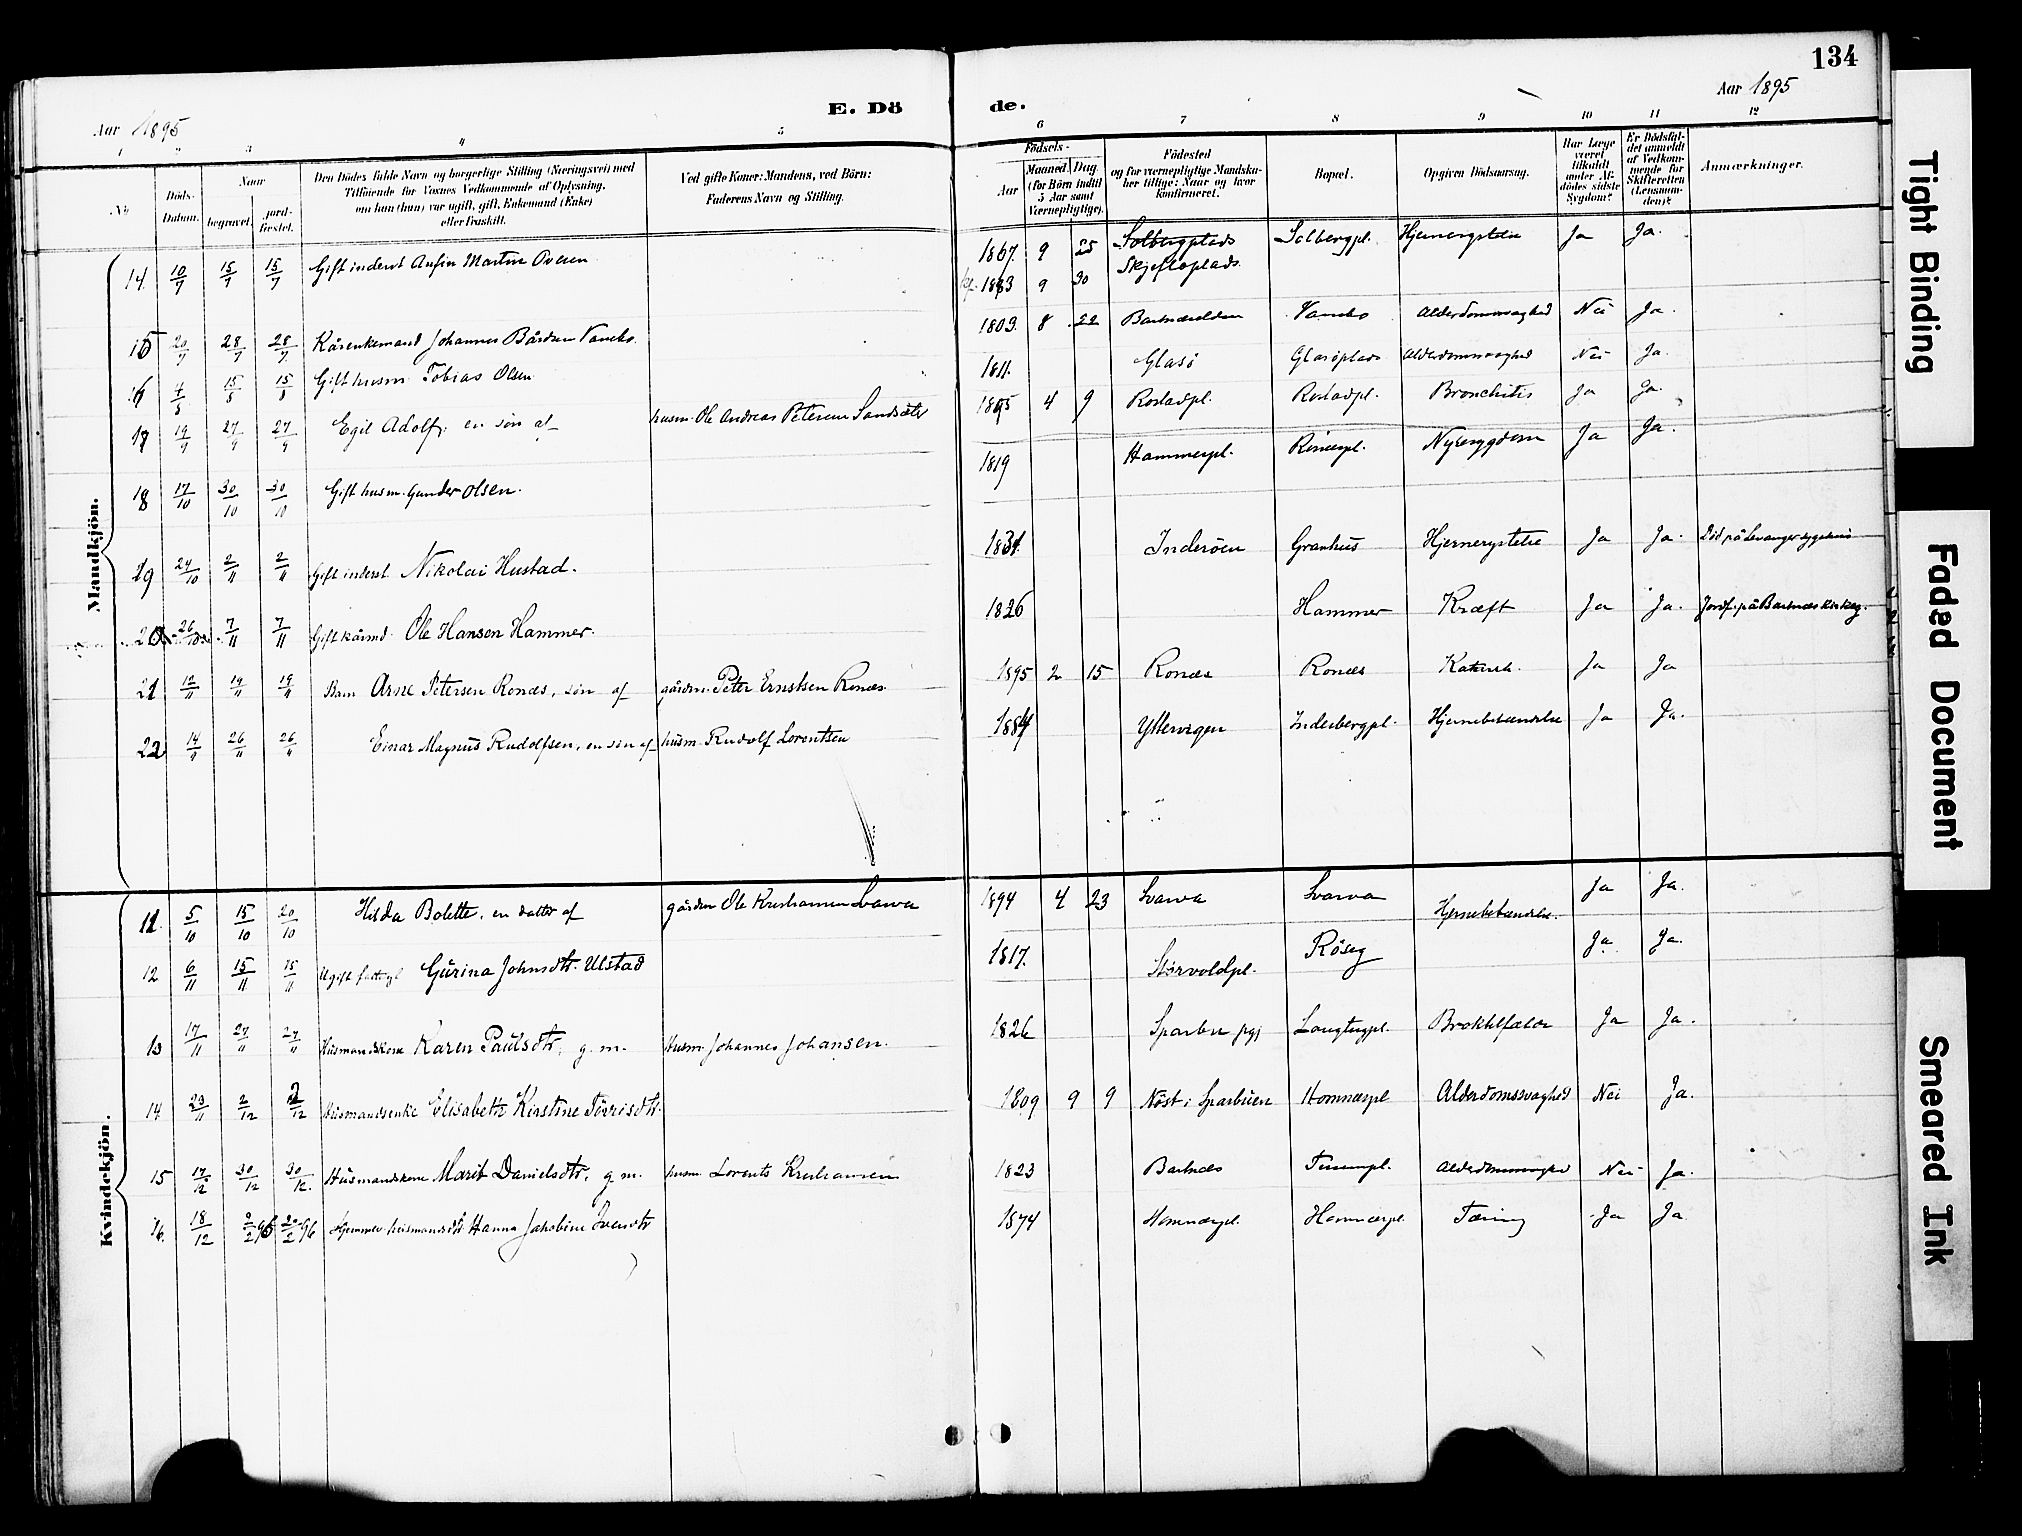 134
Aar 1895
E. Dö de.
Aar 1895
1 2 3 4 5 6 7 8 9 10 11 12
No
Döds-Datum.
Naar
begravet.
jord-fæstet.
Den Dödes fulde Navn og borgerlige Stilling (Næringsvei) med Tilföiende for Voxnes Vedkommende af Oplysning, om han (hun) var ugift, gift, Enkemand (Enke) eller fraskilt.
Ved gifte Koner: Mandens, ved Börn: Faderens Navn og Stilling.
Födsels-
Aar
Maaned. Dag.
(for Börn indtil 5 Aar samt Værnepligtige).
Födested og for værnepligtige Mandskaber tillige: Naar og hvor konfirmeret.
Bopæl.
Opgiven Dödsaarsag.
Har Læge været tilkaldt under Afdödes sidste Sygdom?
Er Dödsfaldet anmeldt af Vedkommende for Skifteretten (Lensmanden)?
Anmærkninger.
Mandkjön.
14. 10/7 15/7 15/7 Gift inderst Martin 1867. 9 25 Solbergplads Solbergpl. Hjernerystelse Ja Ja.
9 30 Skjefloplads.
15 20/7 28/7 28/7 Kårenkemand Johannes Bårdsen 1809. 8 22 Alderdomssvaghed Nei Ja.
16 4/8 15/8 15/8 Gift husm. Tobias Olsen 1811. Glasö Glasöplads Alderdomssvaghed Nei Ja.
17 19/9 27/9 27/9 Egil Adolf, en sön af husm. Ole Andreas Petersen 1895 4 9 Rostadpl. Rostadpl. Bronchitis Ja Ja.
18 17/10 30/10 30/10 Gift husm. Gunder Olsen. 1819 Hammerpl. Nyresygdom Ja Ja.
19 24/10 2/11 2/11 Gift inderst Nikolai Hustad. 1831. Inderöen Granhus Hjernerystelse Ja Ja. Död på Levanger sygehus
20 26/10 7/11 7/11 Gift kårmd Ole Hanson Hammer. 1826 Hammer Kræft Ja Ja. Jordf. på Bartnes kirkeg.
21 12/11 19/11 19/11 Barn Arne Petersen Ronæs, sön af gårdm. Peter Ernstsen Ronæs. 1895 2 15 Ronæs Ronæs Ja Ja
22 26/11 26/11 Einar Magnus Rudolfsen, en sön af husm. Rudolf Lorentsen 1884 Yttervigen Inderbergpl. Hjernebetændelse Ja Ja.
Kvindekjön.
11. 5/10 15/10 20/10 Hilda Bolette, en datter af gårdm Ole Kristiansen Svarva 1894 4 23 Svarva Svarva Hjernebetændelse. Ja Ja.
12 6/11 15/11 15/11 Ugift Gurina Johnsdtr. Ulstad 1817. Störvoldpl. Röseg Ja Ja.
13 17/11 27/11 27/11 Husmandskone Karen Paulsdtr, g. m. Husm. Johannes Johansen. 1826 Sparbu pgj Ja Ja.
14 23/11 2/12 2/12 Husmandsenke Elisabeth Kirstine 1809 9 9 Alderdomssvaghed Nei Ja.
15 17/12 30/12 30/12. Husmandskone Marit Danielsdtr, g. m. husm. Lorents Kristiansen 1823 Bartnæs Alderdomssvaghed Nei Ja.
16. 18/12 2/2 96 2/2 96 Hanna Jakobine 1874 Homnæspl. Homnæspl. Tæring Ja Ja
Tight Binding
Faded Document
Smeared Ink